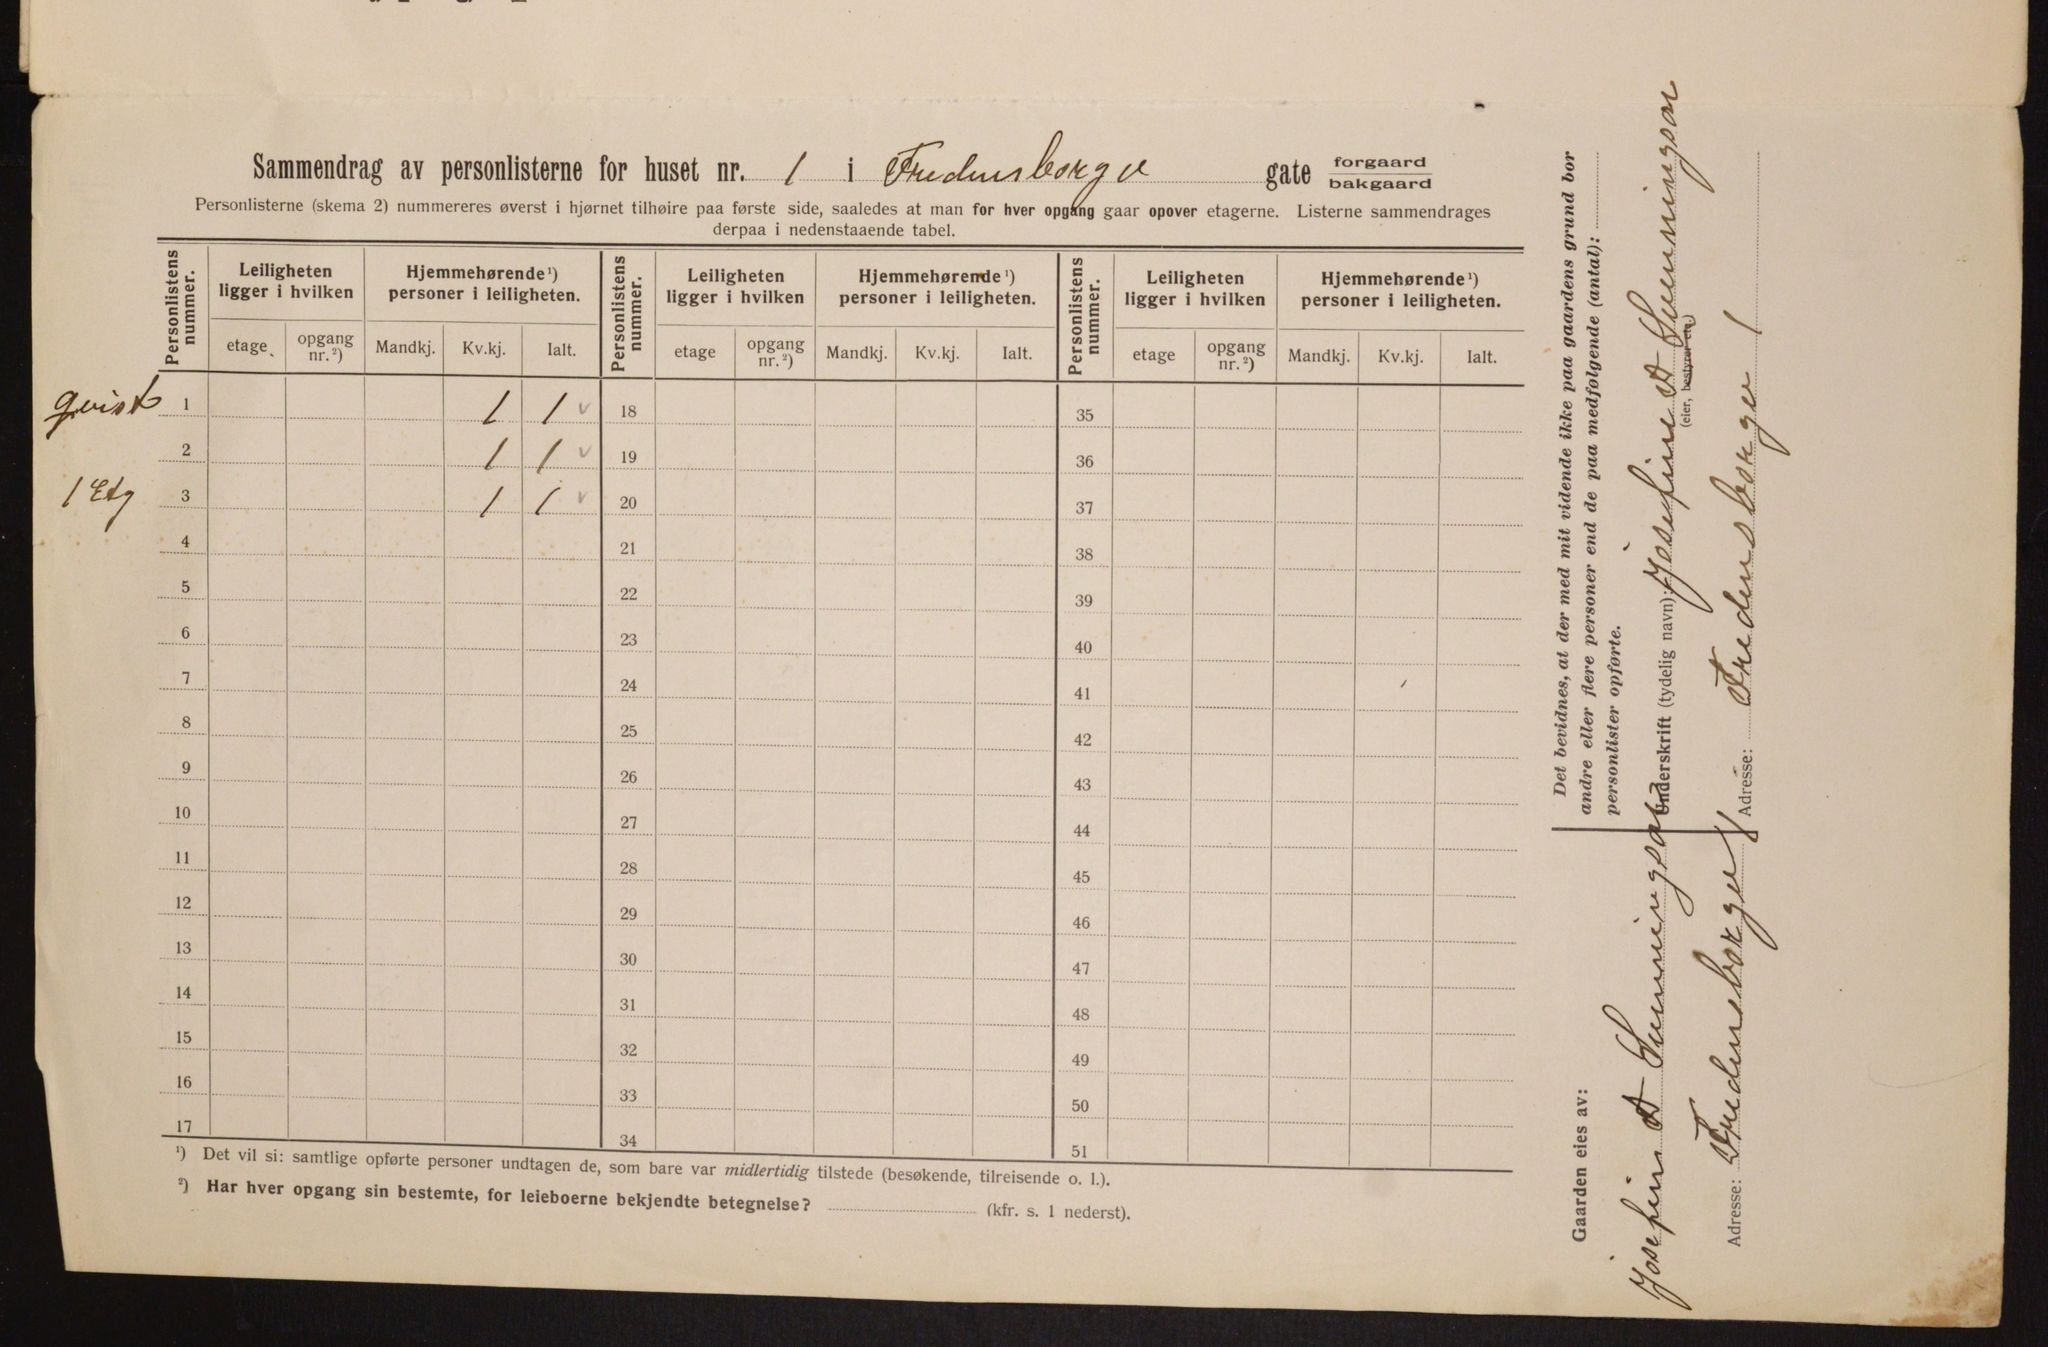 Sammendrag av personlisterne for huset nr. 1 i Fredensborgv gate forgaard
bakgaard
Personlisterne (skema 2) nummereres øverst i hjørnet tilhøire paa første side, saaledes at man for hver opgang gaar opover etagerne. Listerne sammendrages
derpaa i nedenstaaende tabel.
Personlistens nummer. Leiligheten ligger i hvilken Hjemmehørende¹) personer i leiligheten. Personlistens nummer. Leiligheten ligger i hvilken Hjemmehørende¹) personer i leiligheten. Personlistens nummer. Leiligheten ligger i hvilken Hjemmehørende¹) personer i leiligheten.
etage opgang nr.²) Mandkj. Kv.kj. Ialt. etage opgang nr.²) Mandkj. Kv.kj. Ialt. etage opgang nr.²) Mandkj. Kv.kj. Ialt.
qvist 1 1 1 18 35
2 1 1 19 36
1 Etg 3 1 1 20 37
4 21 38
5 22 39
6 23 40
7 24 41
8 25 42
9 26 43
10 27 44
11 28 45
12 29 46
13 30 47
14 31 48
15 32 49
16 33 50
17 34 51
¹) Det vil si: samtlige opførte personer undtagen de, som bare var midlertidig tilstede (besøkende, tilreisende o. l.).
²) Har hver opgang sin bestemte, for leieboerne bekjendte betegnelse? (kfr. s. 1 nederst).
Det bevidnes, at der med mit vidende ikke paa gaardens grund bor
andre eller flere personer end de paa medfølgende (antal):
personlister opførte.
Underskrift (tydelig navn): Josefine
(eier, bestyrer etc.)
Adresse: Fredensborgv 1
Gaarden eies av:
Josefine
Adresse: Fredensborgv 1